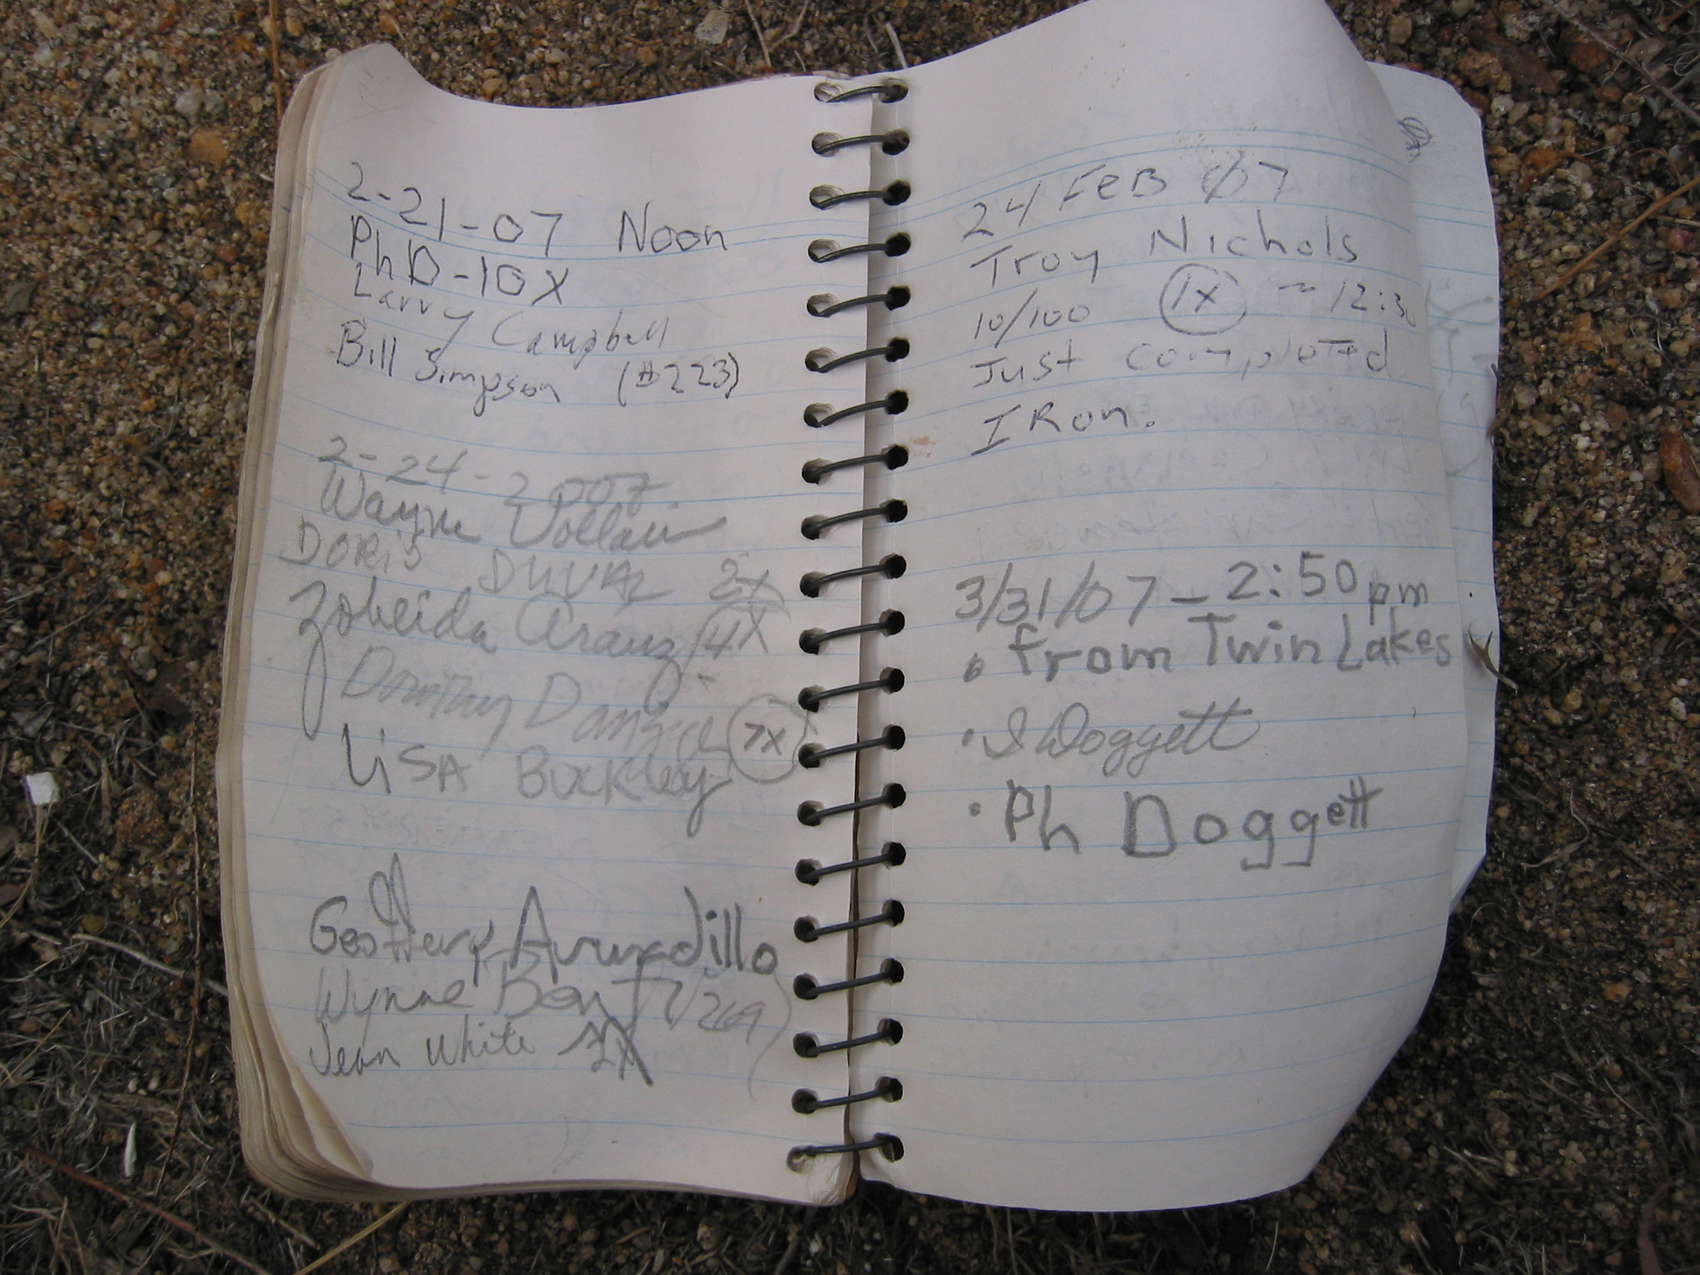 2-21-07 Noon
PhD-10X
Larry Campbell
Bill Simpson (#223)
2-24-2007
Wayne Vollaire
DORIS DUVAL 2x
Zobeida Arauz 14X
Dorothy Danziger
LiSA Buckley 7x
Geoffery Armadillo
Wynne Benti 269
Jean White
24 FeB 07
Troy Nichols
10/100 1x ~12:30
Just completed
IRon.
3/31/07 - 2:50pm
from Twin Lakes
· S Doggett
· Ph Doggett